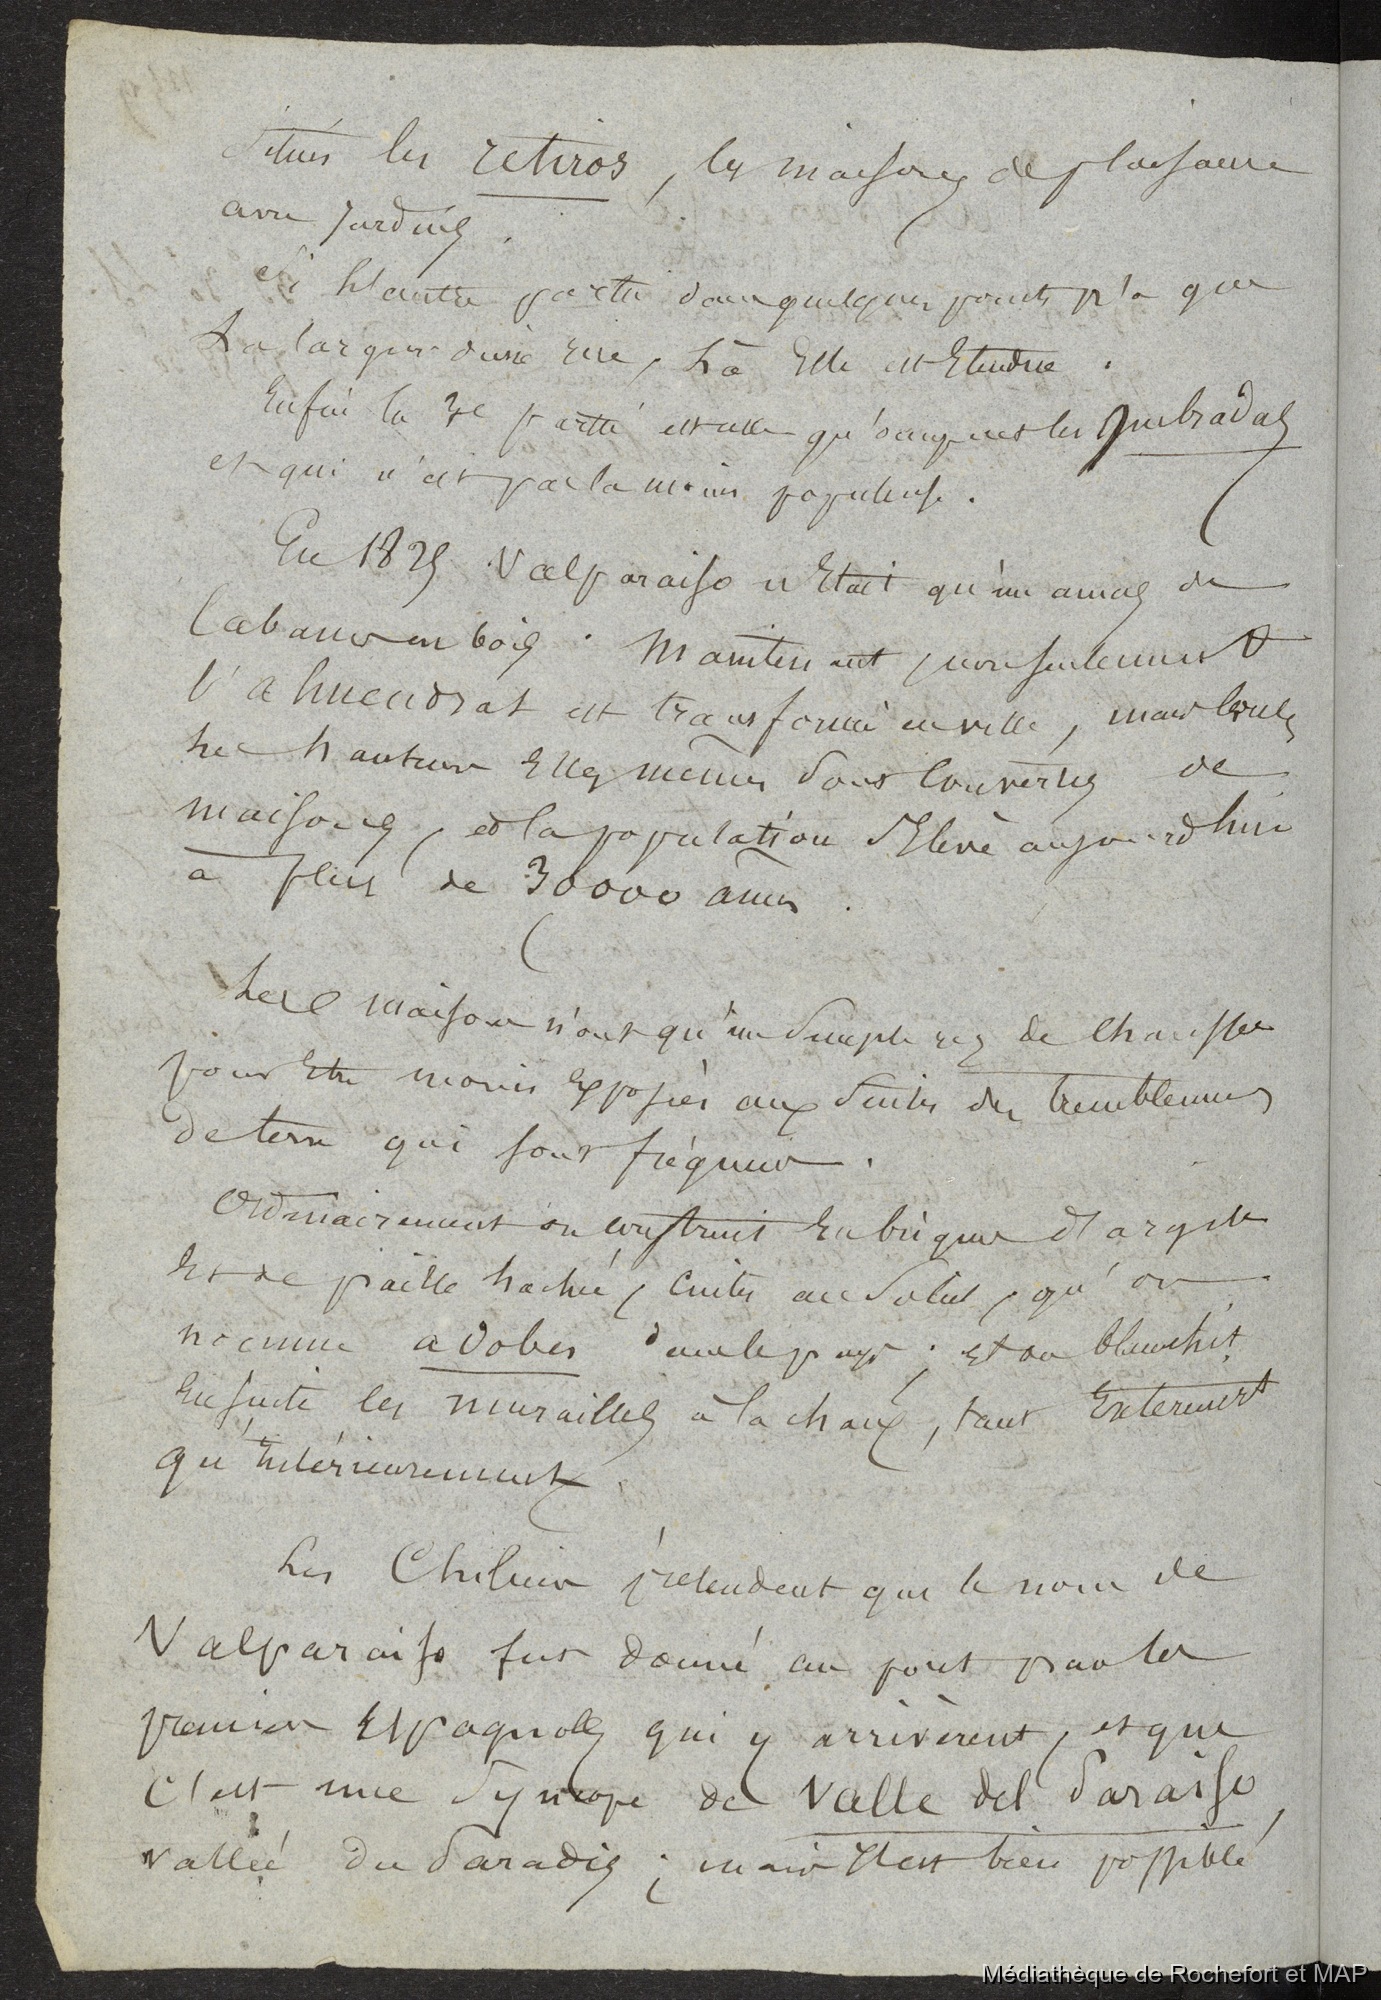 situés les retiros, les maisons de plaisance
avec jardins.
si l'autre partie dans quelques points n'a que
la largeur d'une rue, là elle est étendue.
Enfin la 3e partie est celle qu'occupent les Quebradas
et qui n'est pas la moins populeuse.
En 1825 Valparaiso n'était qu'un amas de
cabanes en bois. Maintenant, non seulement
l'almendral est transformé en ville, mais
les hauteurs elles mêmes sont couvertes de
maisons, et la population s'élève aujourd'hui
à plus de 30000 âmes.
Les maisons n'ont qu'un simple rez de chaussée
pour être moins exposées aux suites des tremblemens
de terre qui sont fréquens.
Ordinairement on construit en briques d'argile
et de paille hachée, cuites au soleil, qu'on
nomme adobes dans le pays; et on blanchit
ensuite les murailles à la chaux, tant
qu'intérieurement.
Les Chiliens prétendent que le nom de
Valparaiso fut donné au port par les
premiers Espagnols qui y arrivèrent, et que
c'est une syncope de Valle del Paraiso,
vallée du Paradis; mais il est bien possible
Médiathèque de Rochefort et MAP